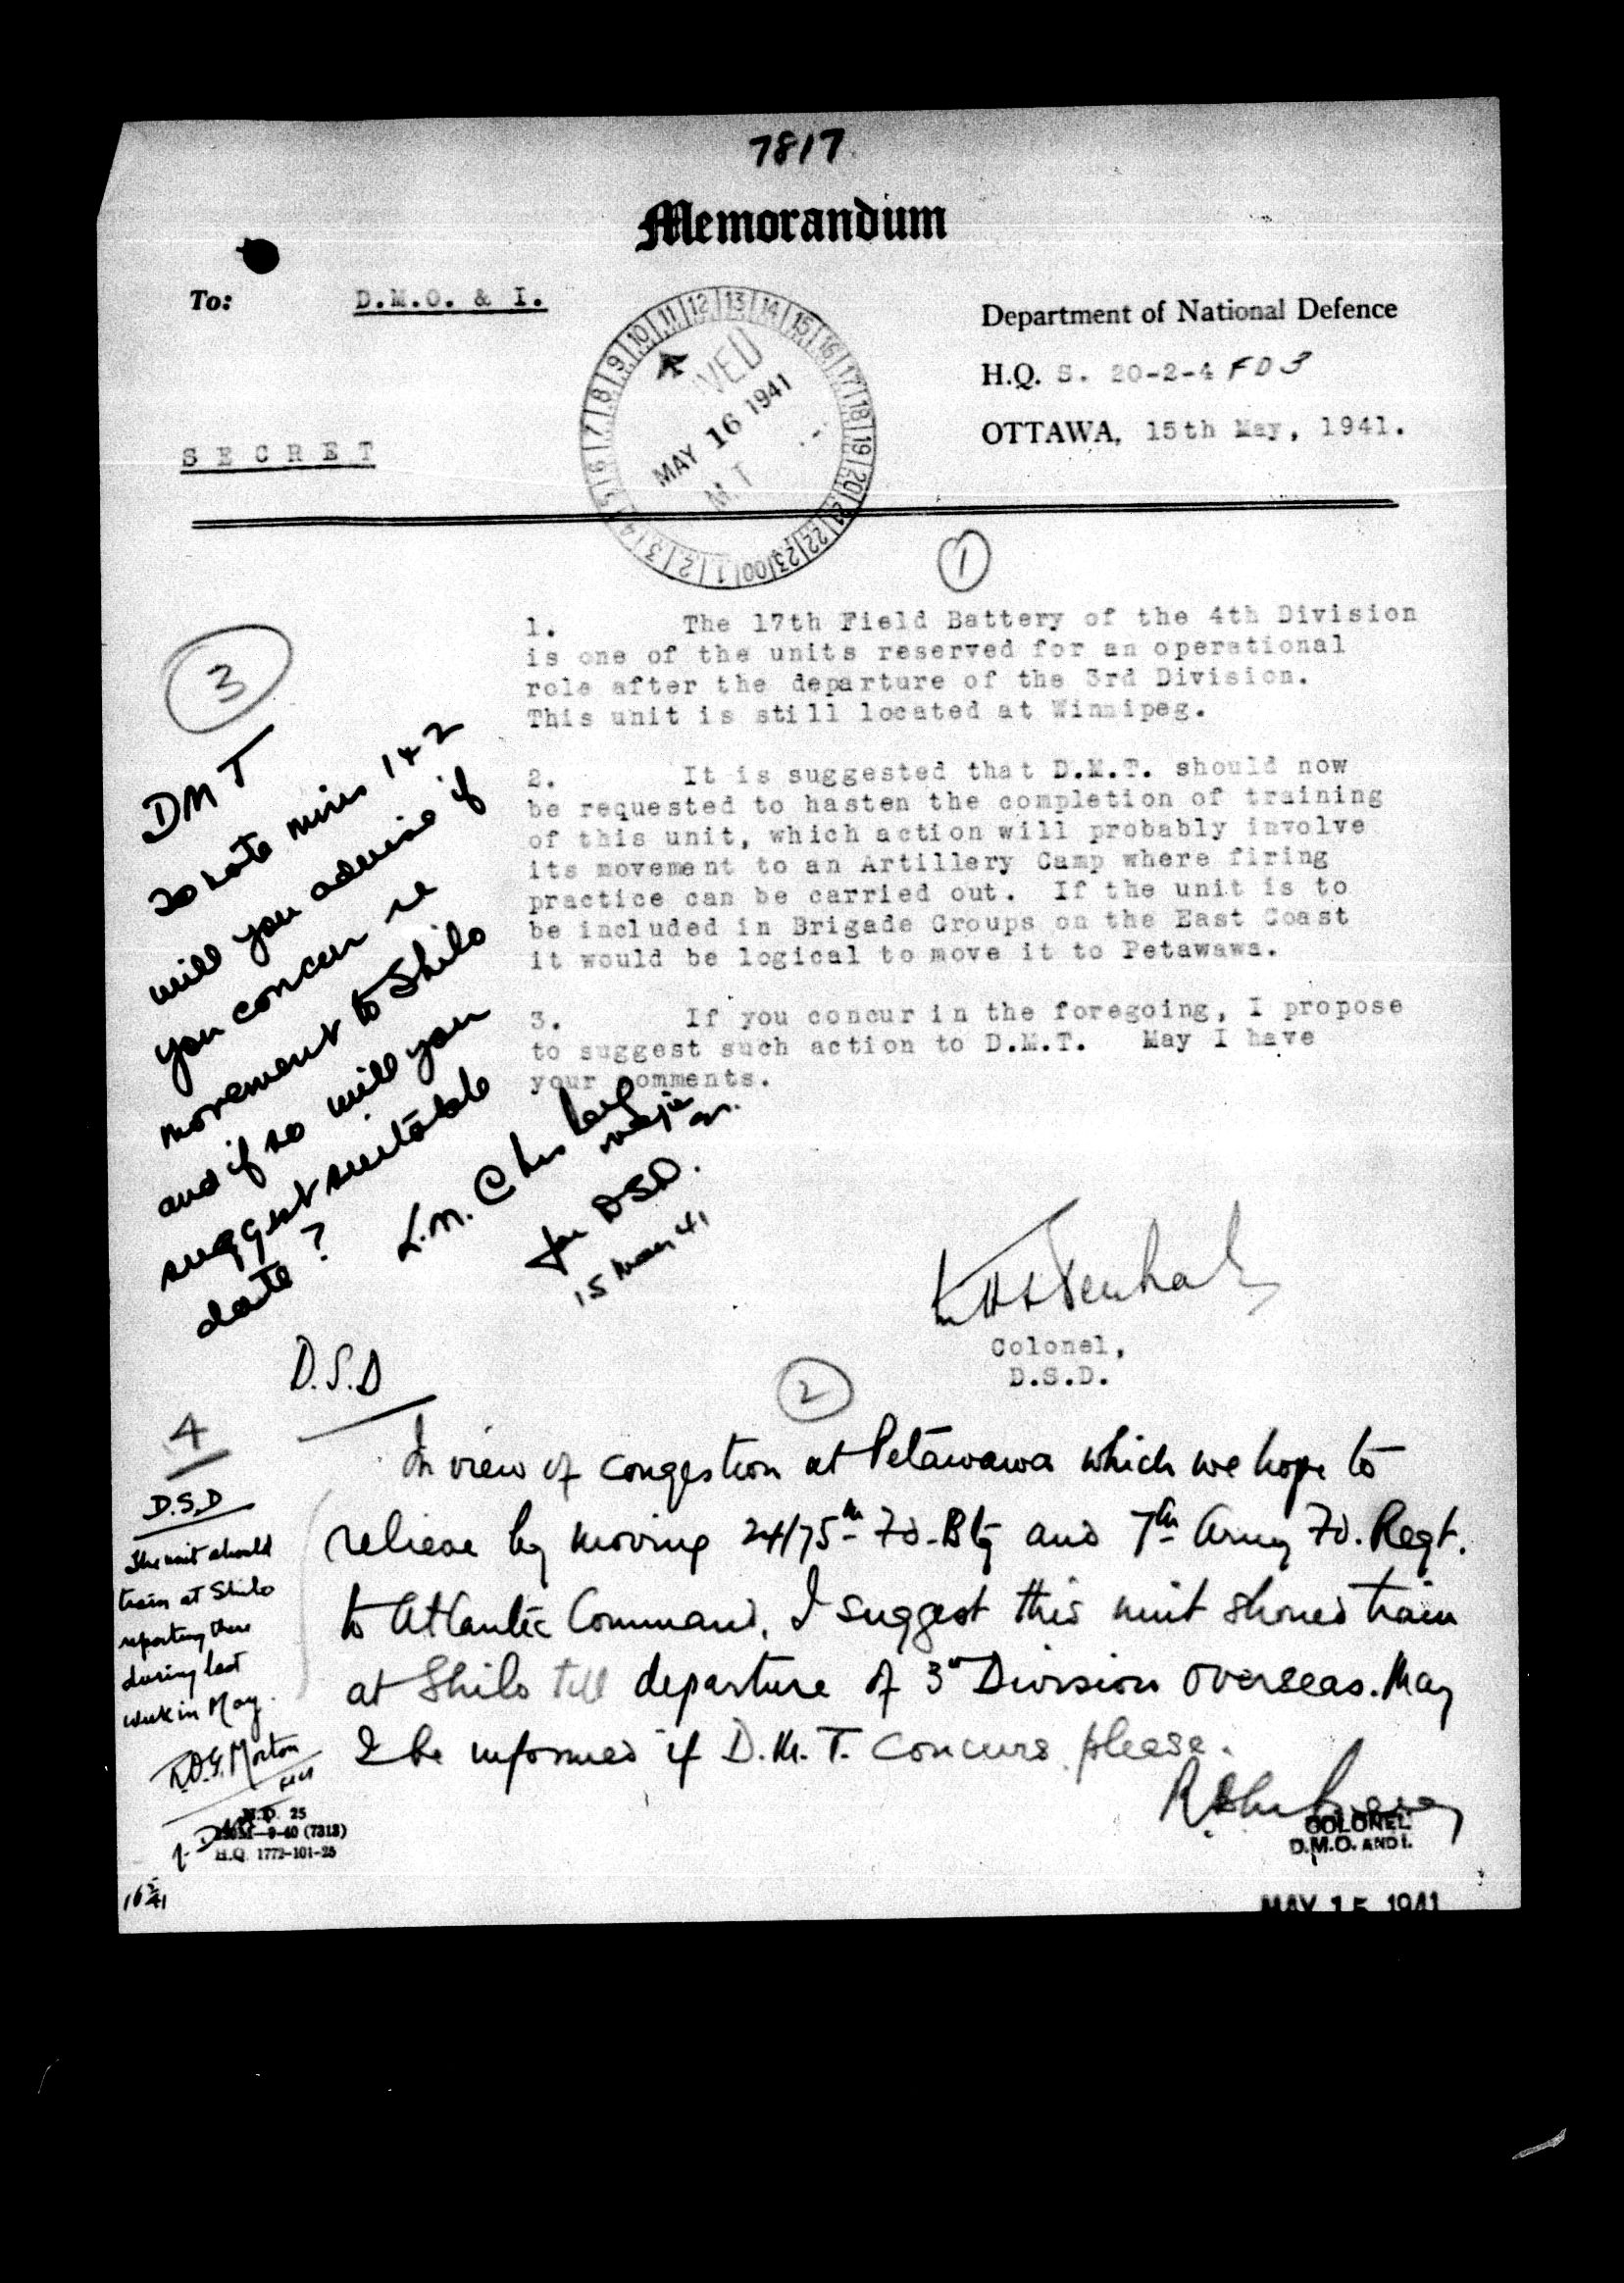 7817
Memorandum
To: D.M.O. & I.
Department of National Defence
H.Q. S. 20-2-4 FD 3
OTTAWA, 15th May, 1941.
S E C R E T
1 2 3 4 5 6 7 8 9 10 11 12 13 14 15 16 17 18 19 20 21 22 23 00
VED
MAY 16 1941
M.T
1
1. The 17th Field Battery of the 4th Division
is one of the units reserved for an operational
role after the departure of the 3rd Division.
This unit is still located at Winnipeg.
2. It is suggested that D.M.T. should now
be requested to hasten the completion of training
of this unit, which action will probably involve
its movement to an Artillery Camp where firing
practice can be carried out. If the unit is to
be included in Brigade Groups on the East Coast
it would be logical to move it to Petawawa.
3. If you concur in the foregoing, I propose
to suggest such action to D.M.T. May I have
your comments.
Colonel,
D.S.D.
2
D.S.D
In view of congestion at Petawawa which we hope to
relieve by moving 24/75th Fd. Bty and 7th Army Fd. Regt.
to Atlantic Command, I suggest this unit should train
at Shilo till departure of 3rd Division overseas. May
I be informed if D.M.T. concurs please.
COLONEL
D.M.O. AND I.
MAY 15 1941
3
DMT
To note mins 1 & 2
will you advise if
you concur re
movement to Shilo
and if so will you
suggest suitable
date?
L.M. Chesley
Major
for DSD.
15 May 41
4
D.S.D
The unit should
train at Shilo
reporting there
during last
week in May.
R.O.G. Morton
M.D. 25
9-40 (7313)
H.Q. 1772-101-25
16/5/41